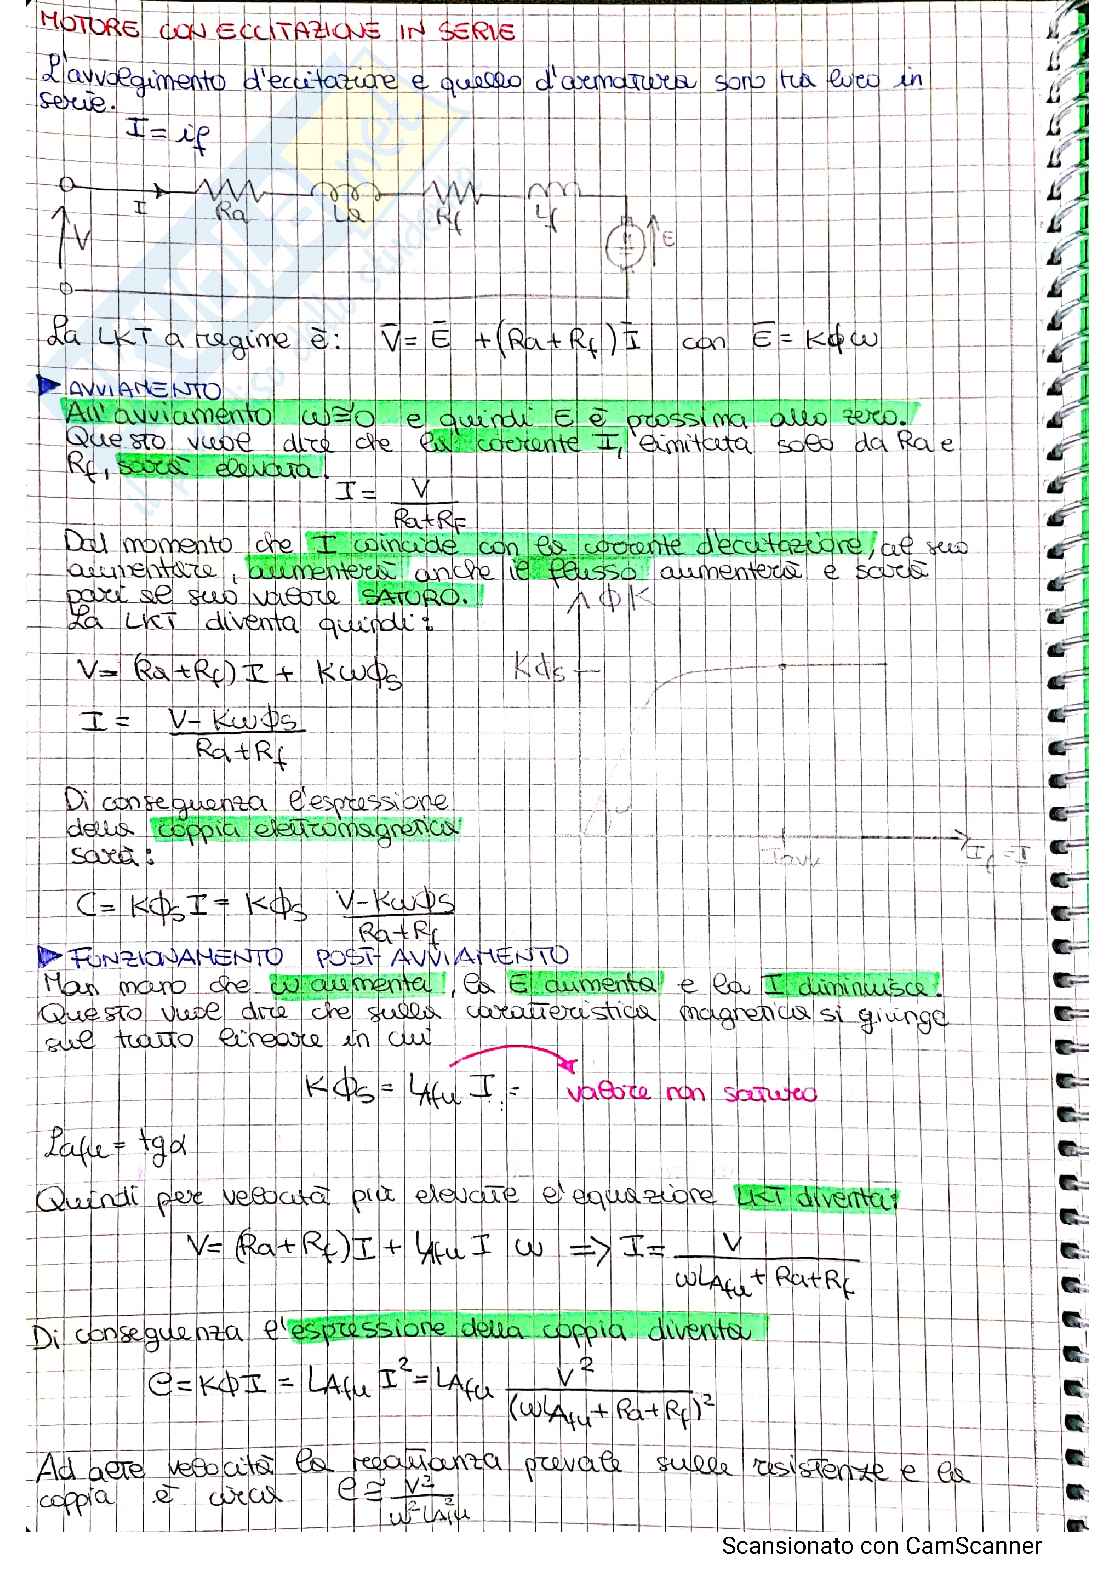 MOTORE CON ECCITAZIONE IN SERIE
L'avvolgimento d'eccitazione e quello d'armatura sono tra loro in
serie.
I = if
I Ra La Rf Lf
V E
La LKT a regime è: V̅ = E̅ + (Ra + Rf) I̅ con E̅ = Kϕω
▶ AVVIAMENTO
All'avviamento ω≅0 e quindi E è prossima allo zero.
Questo vuol dire che la corrente I, limitata solo da Ra e
Rf, sarà elevata.
I = V / (Ra+RF)
Dal momento che I coincide con la corrente d'eccitazione, al suo
aumentare, aumenterà anche il flusso aumenterà e sarà
pari al suo valore SATURO.
ϕK
La LKT diventa quindi:
V = (Ra + Rf) I + Kωϕs
Kϕs
I = (V - Kωϕs) / (Ra + Rf)
Di conseguenza l'espressione
della coppia elettromagnetica
sarà:
Iavv If = I
C = KϕsI = Kϕs (V - Kωϕs) / (Ra + Rf)
▶ FUNZIONAMENTO POST-AVVIAMENTO
Man mano che ω aumenta, la E aumenta e la I diminuisce.
Questo vuol dire che sulla caratteristica magnetica si giunge
sul tratto lineare in cui
Kϕs = LAfu I = valore non saturo
Lafu = tgα
Quindi per velocità più elevate l'equazione LKT diventa:
V = (Ra + Rf) I + LAfu I ω => I = V / (ωLAfu + Ra + Rf)
Di conseguenza l'espressione della coppia diventa
C = KϕI = LAfu I² = LAfu V² / (ωLAfu + Ra + Rf)²
Ad alte velocità la reattanza prevale sulle resistenze e la
coppia è circa C ≅ V² / ω²LAfu
Scansionato con CamScanner